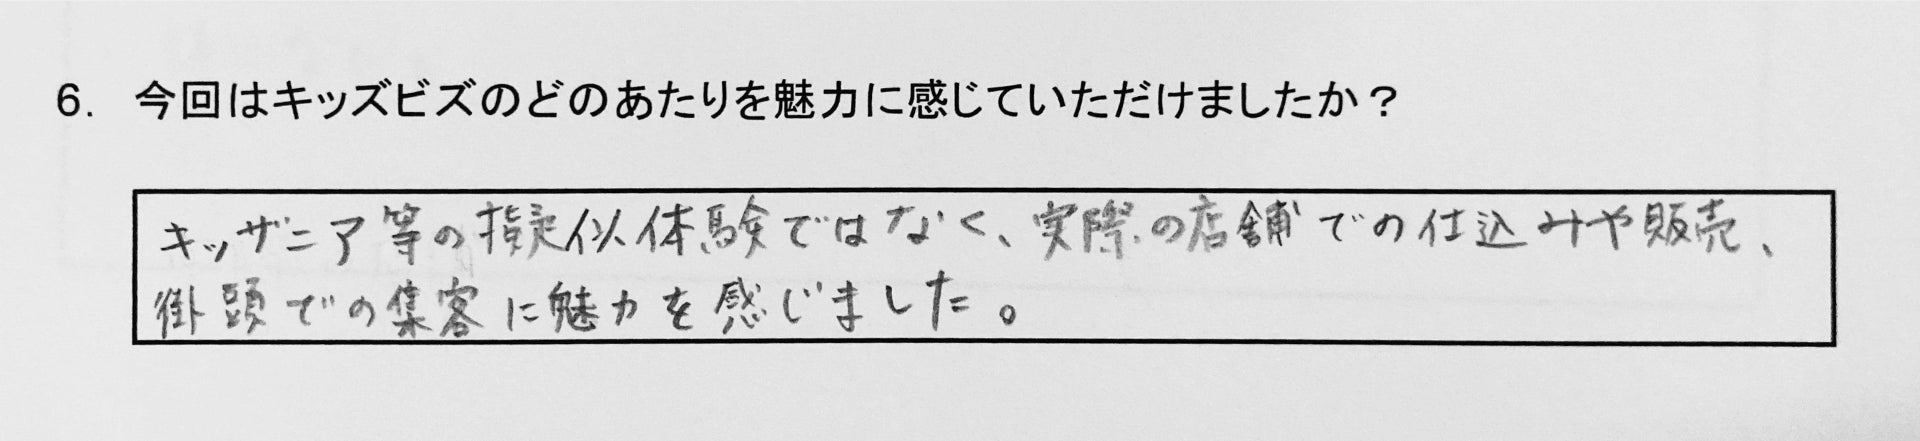 6. 今回はキッズビズのどのあたりを魅力に感じていただけましたか？
キッザニア等の擬似体験ではなく、実際の店舗での仕込みや販売、
街頭での集客に魅力を感じました。